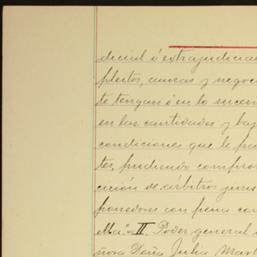 decial ó extrajudicia
pleitos, causas y negoc
te tengan ó en lo suces
en las cantidades y baj
condiciones que le pa
tes, pudiendo compro
cisión de árbitros juris
ponedores con pena con
II. Poder general
ñora Doña Julia Mart